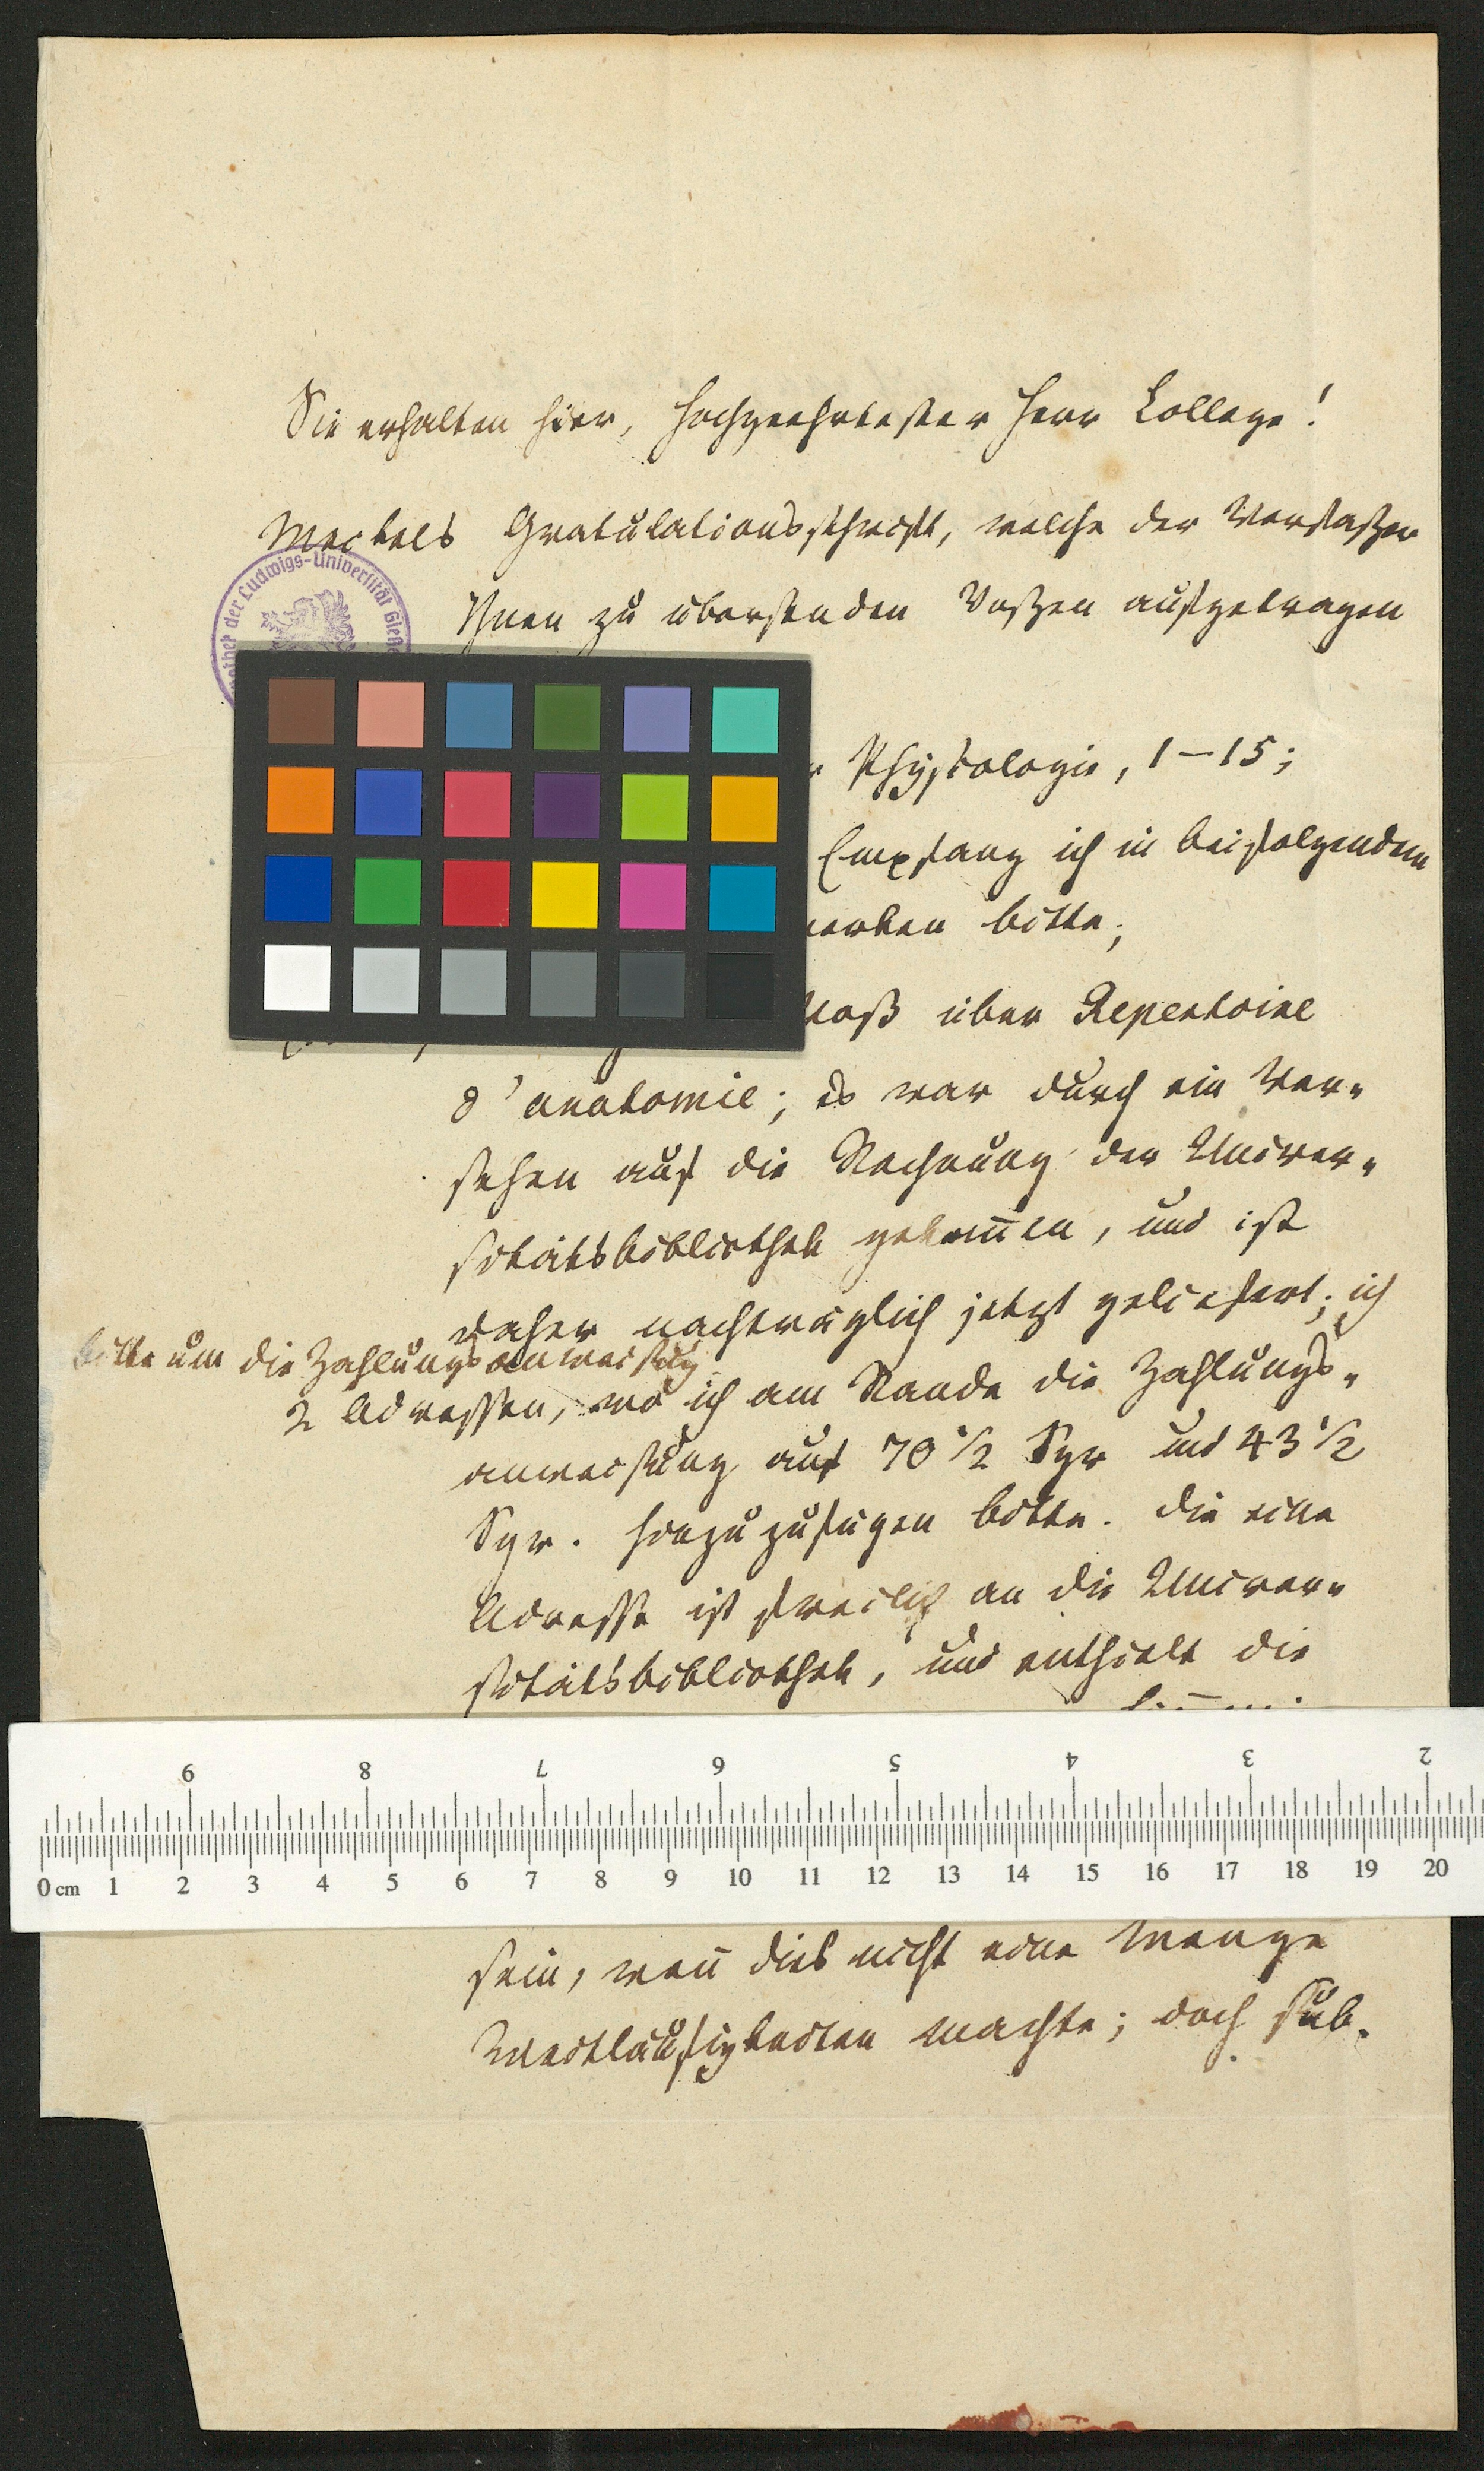 Sie erhalten hier, hochgeehrtester Herr College!
Meckels Gratulationsschrift, welche der Verfaßer
othek der Ludwigs-Universität Gieße
Ihnen zu übersenden Voßen aufgetragen
Physiologie, 1–15;
Empfang ich in beifolgendem
merken bitte;
Voß über Repertoire
d'anatomie; es war durch ein Ver-
sehen auf die Rechnung der Univer-
sitätsbibliothek gekom̅en, und ist
daher nachträglich jetzt geliefert; ich
bitte um die Zahlungsanweisung
2 Adressen, wo ich am Rande die Zahlungs-
anweisung auf 70 1/2 Sgr und 43 1/2
Sgr. hinzuzufügen bitte. Die eine
Adresse ist freilich an die Univer-
sitätsbibliothek, und enthielt die
9 8 7 6 5 4 3 2
0 cm 1 2 3 4 5 6 7 8 9 10 11 12 13 14 15 16 17 18 19 20
sein, wen̅ dies nicht eine Menge
Weitläufigkeiten machte; doch sub-